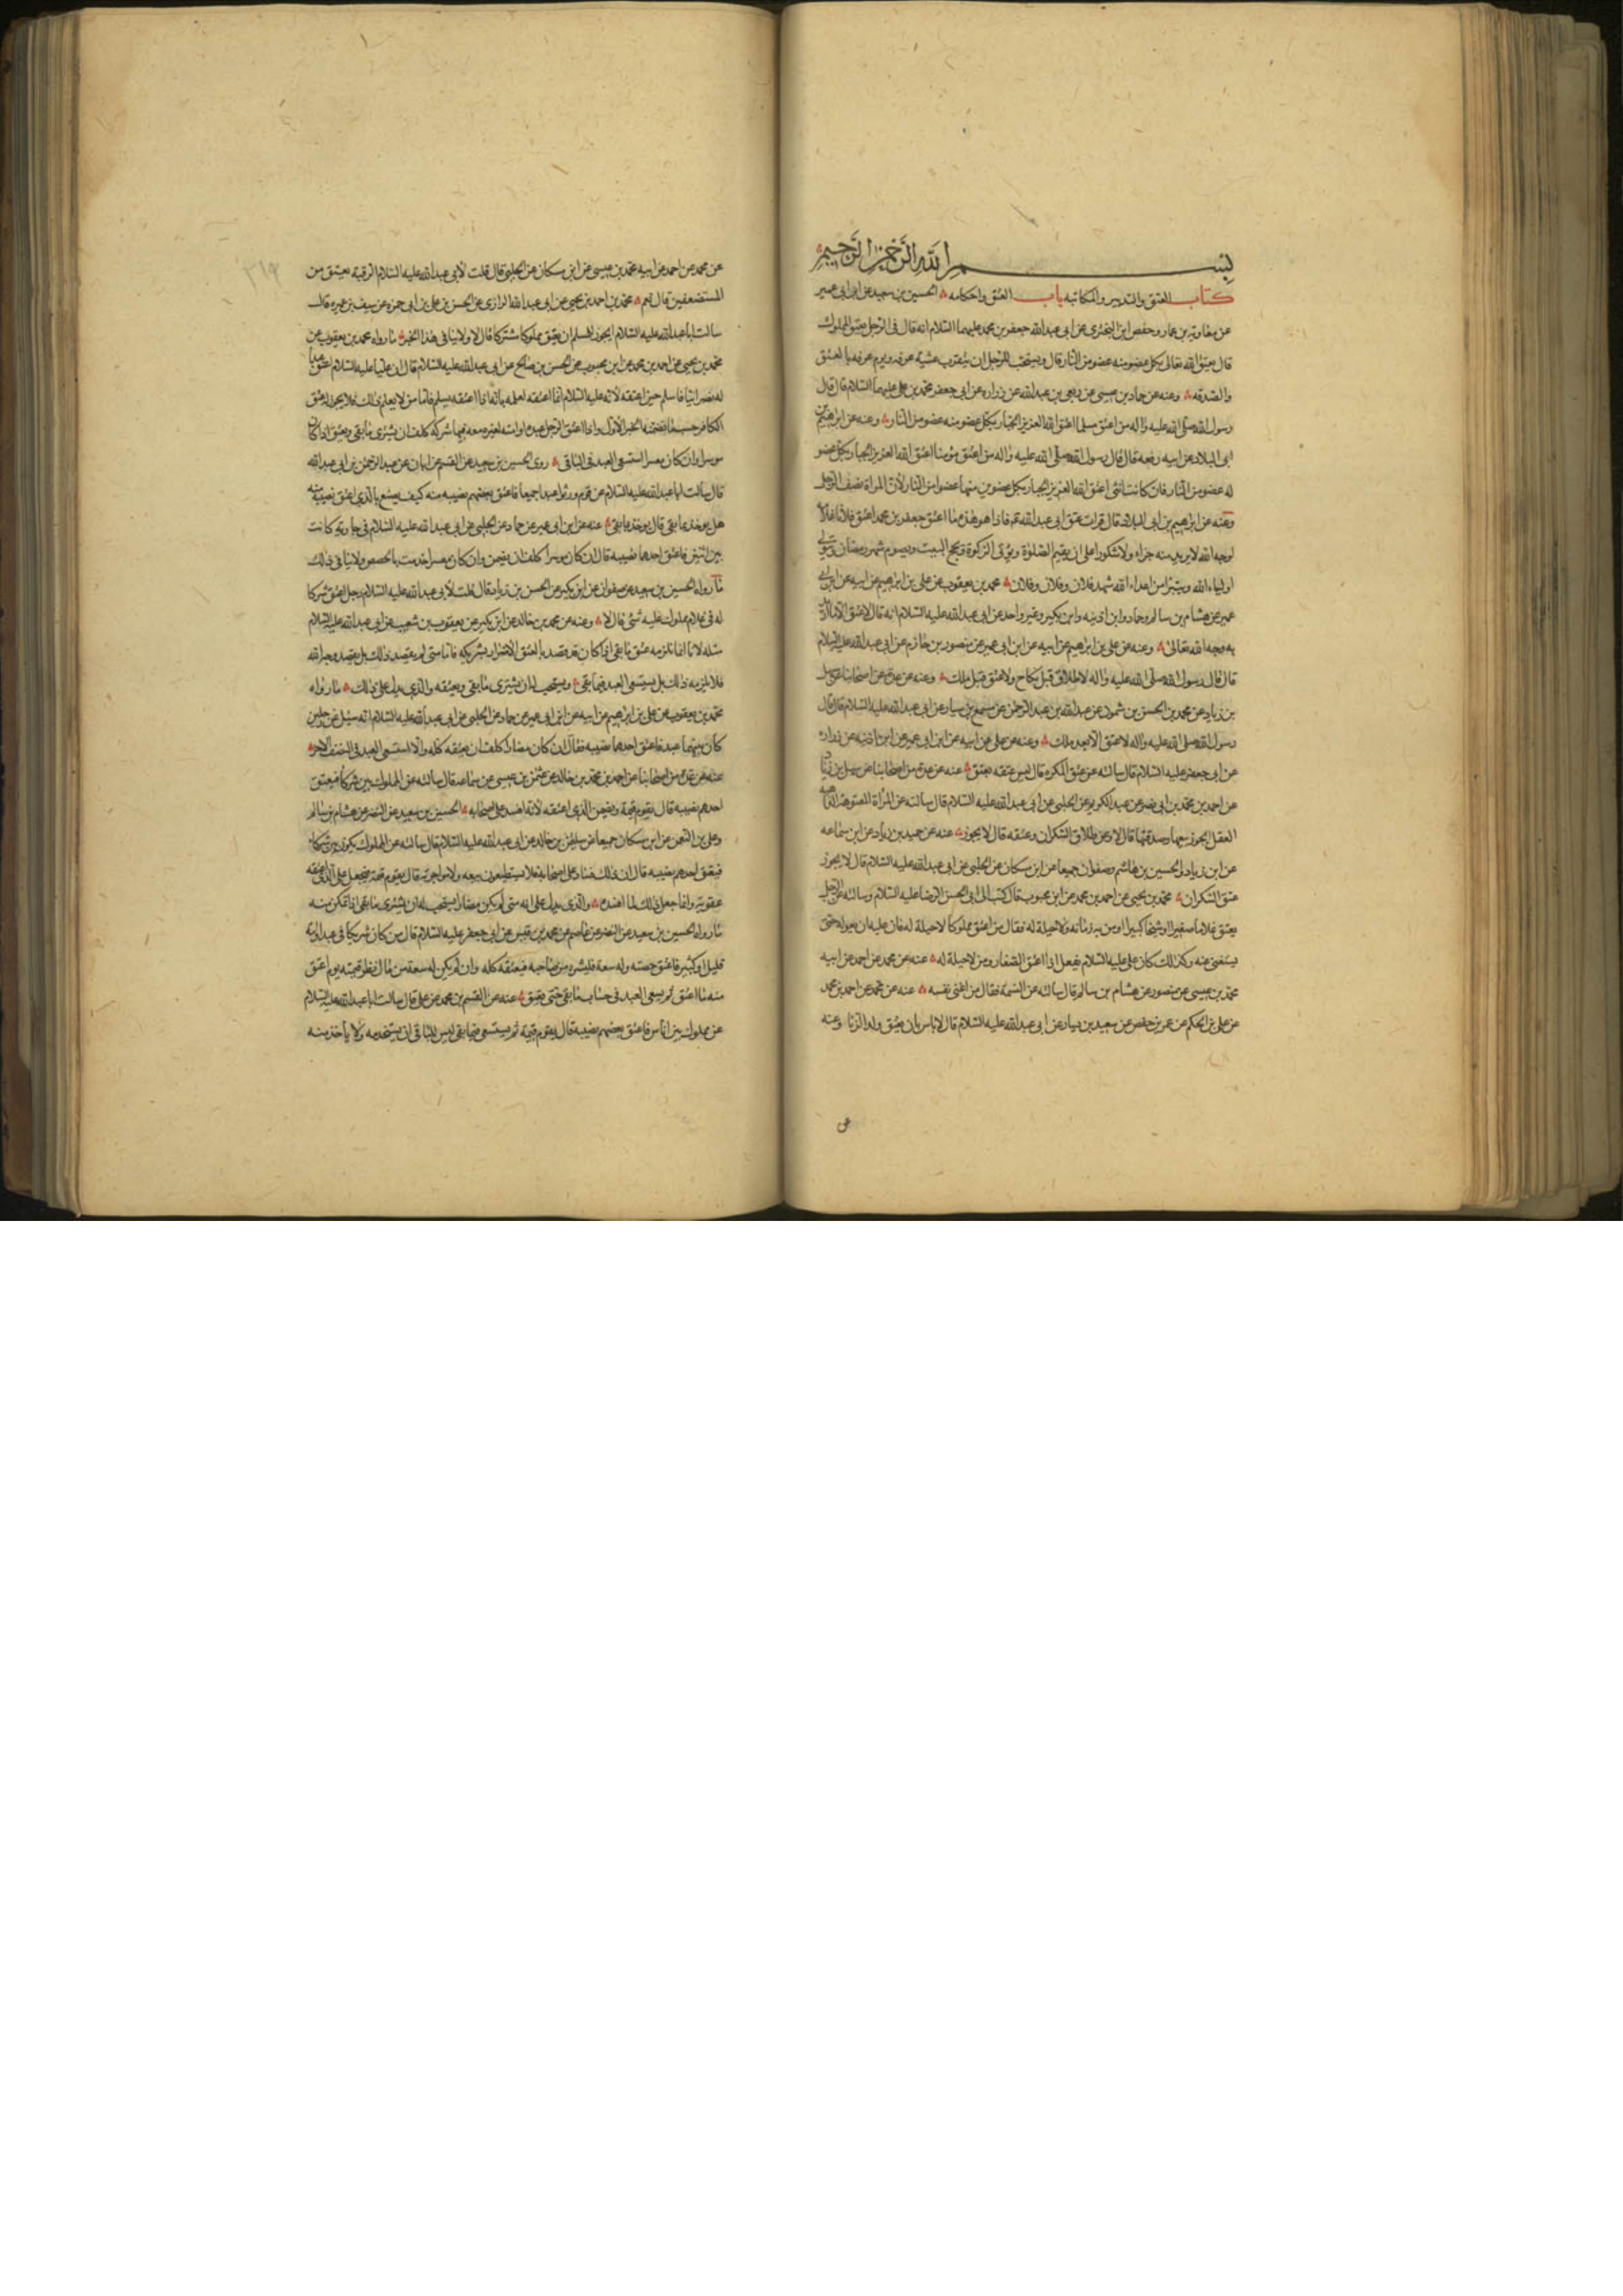 بسم الله الرحمن الرحيم
كتاب العتق والتدبير والمكاتبه باب العتق واحكامه الحسين بن سعيد عن ابن ابى عمير
عن معاوية بن عمار وحفص ابن البخترى عن ابى عبد الله جعفر بن محمد عليهما السلام انه قال فى الرجل يعتق المملوك
قال يعتق الله تعالى بكل عضو منه عضو من النار قال ويستحب للرجل ان يتقرب عشية عرفه ويوم عرفه بالعتق
والصدقه وعنه عن حماد بن عيسى عن ربعى بن عبد الله عن زراره عن ابى جعفر محمد بن على عليهما السلام قال قال
رسول الله صلى الله عليه واله من اعتق مسلما اعتق الله العزيز الجبار بكل عضو منه عضو من النار وعنه عن ابراهيم بن
ابى البلاد عن ابيه رفعه قال قال رسول الله صلى الله عليه واله من اعتق مؤمنا اعتق الله العزيز الجبار بكل عضو
له عضو من النار فان كانت انثى اعتق الله العزيز الجبار بكل عضوين منها عضوا من النار لأن المراة نصف الرجل
وعنه عن ابراهيم بن ابى البلاد قال قرات عتق ابى عبد الله عم فاذا هو هذا ما اعتق جعفر بن محمد اعتق فلانا غلامه
لوجه الله لا يريد منه جزاء ولا شكورا على ان يقيم الصلوة ويؤتى الزكوة ويحج البيت ويصوم شهر رمضان ويتولى
اولياء الله ويتبرأ من اعداء الله شهد فلان وفلان وفلان محمد بن يعقوب عن على بن ابراهيم عن ابيه عن ابن ابى
عمير عن هشام بن سالم وحماد وابن اذينه وابن بكير وغير واحد عن ابى عبد الله عليه السلام انه قال لا عتق الا ما اريد
به وجه الله تعالى وعنه عن على بن ابراهيم عن ابيه عن ابن ابى عمير عن منصور بن حازم عن ابى عبد الله عليه السلام
قال قال رسول الله صلى الله عليه واله لا طلاق قبل نكاح ولا عتق قبل ملك وعنه عن عدة من اصحابنا عن سهل
بن زياد عن محمد بن الحسن بن شمون عن عبد الله بن عبد الرحمن عن مسمع بن سيار عن ابى عبد الله عليه السلام قال قال
رسول الله صلى الله عليه واله لا عتق الا بعد ملك وعنه عن على عن ابيه عن ابن ابى عمير عن ابن اذينه عن زراره
عن ابى جعفر عليه السلام قال سالته عن عتق المكره قال ليس عتقه بعتق عنه عن عدة من اصحابنا عن سهل بن زياد
عن احمد بن محمد بن ابى نصر عن عبد الكريم عن الحلبى عن ابى عبد الله عليه السلام قال سالته عن المراة المعتوهة الذاهبة
العقل ايجوز بيعها وصدقتها قال لا وعن طلاق السكران وعتقه قال لا يجوز عنه عن حميد بن زياد عن ابن سماعه
عن ابن زياد والحسين بن هاشم وصفوان جميعا عن ابن مسكان عن الحلبى عن ابى عبد الله عليه السلام قال لا يجوز
عتق السكران محمد بن يحيى عن احمد بن محمد عن ابن محبوب قال كتب الى ابى الحسن الرضا عليه السلام وسالته عن الرجل
يعتق غلاما صغيرا او شيخا كبيرا او من به زمانه ولا حيلة له فقال من اعتق مملوكا لا حيلة له فان عليه ان يعوله حتى
يستغنى عنه وكذلك كان على عليه السلام يفعل اذا اعتق الصغار ومن لا حيلة له عنه عن محمد عن احمد عن ابيه
محمد بن عيسى عن منصور عن هشام بن سالم قال سالته عن النسمة فقال من اغنى نفسه عنه عن محمد عن احمد بن محمد
عن على بن الحكم عن عمر بن حفص عن سعيد بن يسار عن ابى عبد الله عليه السلام قال لا باس بان يعتق ولد الزنا وعنه
عن
عن محمد عن احمد عن ابيه محمد بن عيسى عن ابن مسكان عن الحلبى قال قلت لأبى عبد الله عليه السلام الرقبة تعتق من
المستضعفين قال نعم محمد بن احمد بن يحيى عن ابى عبد الله الرازى عن الحسن بن على بن ابى حمزه عن سيف بن عميره قال
سالت ابا عبد الله عليه السلام ايجوز للمسلم ان يعتق مملوكا مشركا قال لا ولا ينافى هذا الخبر ما رواه محمد بن يعقوب عن
محمد بن يحيى عن احمد بن محمد عن ابن محبوب عن الحسن بن صالح عن ابى عبد الله عليه السلام قال ان عليا عليه السلام اعتق عبدا
له نصرانيا فاسلم حين اعتقه لأنه عليه السلام انما اعتقه لعلمه بانه اذا اعتقه يسلم فاما من لا يعلم ذلك فلا يجوز له عتق
الكافر حسب ما تضمنه الخبر الأول واذا اعتق الرجل عبده او امته لغيره معه فيها شركه كلف ان يشترى ما بقى ويعتق اذا كان
موسرا وان كان معسرا استسعى العبد فى الباقى روى الحسين بن سعيد عن القسم عن ابان عن عبد الرحمن بن ابى عبد الله
قال سالت ابا عبد الله عليه السلام عن قوم ورثوا عبدا جميعا فاعتق بعضهم نصيبه منه كيف يصنع بالذى اعتق نصيبه منه
هل يوخذ بما بقى قال يوخذ بما بقى عنه عن ابن ابى عمير عن حماد عن الحلبى عن ابى عبد الله عليه السلام فى جارية كانت
بين اثنين فاعتق احدهما نصيبه قال ان كان موسرا كلف ان يضمن وان كان معسرا خدمت بالحصص ولا ينافى ذلك
ما رواه الحسين بن سعيد عن صفوان عن ابن بكير عن الحسن بن زياد قال قلت لأبى عبد الله عليه السلام رجل اعتق شركا
له فى غلام مملوك عليه شئ قال لا وعنه عن محمد بن خالد عن ابن بكير عن يعقوب بن شعيب عن ابى عبد الله عليه السلام
مثله لانا انما نلزمه عتق ما بقى اذا كان قد قصد بالعتق الاضرار بشريكه فاما متى لم يقصد ذلك بل يقصد وجه الله
فلا يلزمه ذلك بل يستسعى العبد فيما بقى ويستحب له ان يشترى ما بقى ويعتقه والذى يدل على ذلك ما رواه
محمد بن يعقوب عن على بن ابراهيم عن ابيه عن ابن ابى عمير عن حماد عن الحلبى عن ابى عبد الله عليه السلام انه سئل عن رجلين
كان بينهما عبد فاعتق احدهما نصيبه فقال ان كان مضارا كلف ان يعتقه كله والا استسعى العبد فى النصف الاخر
عنه عن عدة من اصحابنا عن احمد بن محمد بن خالد عن عثمن بن عيسى عن سماعه قال سالته عن المملوك بين شركاء فيعتق
احدهم نصيبه قال يقوم قيمة ويضمن الذى اعتقه لأنه افسده على اصحابه الحسين بن سعيد عن النضر عن هشام بن سالم
وعلى بن النعمن عن ابن مسكان جميعا عن سليمن بن خالد عن ابى عبد الله عليه السلام قال سالته عن المملوك يكون بين شركاء
فيعتق احدهم نصيبه قال ان ذلك فساد على اصحابه فلا يستطيعون بيعه ولا مواجرته قال يقوم قيمة فيجعل على الذى اعتقه
عقوبة وانما جعل ذلك لما افسده والذى يدل على انه متى لم يكن مضارا يستحب له ان يشترى ما بقى اذا تمكن منه
ما رواه الحسين بن سعيد عن النضر عن عاصم عن محمد بن قيس عن ابى جعفر عليه السلام قال من كان شريكا فى عبد او امة
قليل او كثير فاعتق حصته وله سعة فليشتره من صاحبه فيعتقه كله وان لم يكن له سعة من مال نظر قيمته يوم اعتق
منه ما اعتق ثم يسعى العبد فى حساب ما بقى حتى يعتق عنه عن القسم بن محمد عن على قال سالت ابا عبد الله عليه السلام
عن مملوك بين اناس فاعتق بعضهم نصيبه قال يقوم قيمة ثم يستسعى فيما بقى ليس للباقى ان يستخدمه ولا يأخذ منه